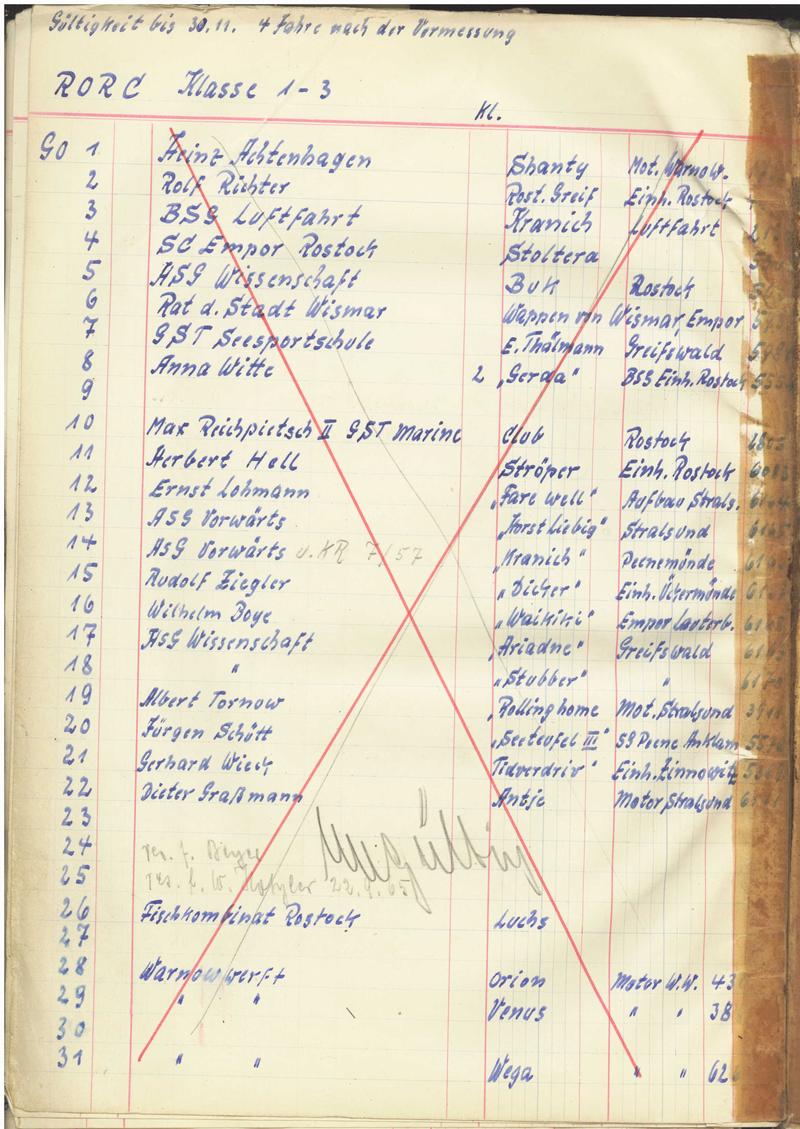 Gültigkeit bis 30.11. 4 Jahre nach der Vermessung
RORC Klasse 1-3
Kl.
GO 1 Heinz Achtenhagen Shanty Mot. Warnow.
2 Rolf Richter Rost. Greif Einh. Rostock
3 BSG Luftfahrt Kranich Luftfahrt
4 SC Empor Rostock Stoltera
5 ASG Wissenschaft Buk Rostock
6 Rat d. Stadt Wismar Wappen von Wismar, Empor
7 GST Seesportschule E. Thälmann Greifswald
8 Anna Witte 2 „Gerda" BSG Einh. Rostock
9
10 Max Reichpietsch II GST Marine Club Rostock
11 Herbert Hell Ströper Einh. Rostock
12 Ernst Lohmann „Fare well" Aufbau Strals.
13 ASG Vorwärts „Horst Liebig" Stralsund
14 ASG Vorwärts v. KR 7/57 „Kranich" Peenemünde
15 Rudolf Ziegler „Dicker" Einh. Ückermünde
16 Wilhelm Boye „Waikiki" Empor Lauterb.
17 ASG Wissenschaft „Ariadne" Greifswald
18 " „Stubber" "
19 Albert Tornow „Rollinghome Mot. Stralsund
20 Jürgen Schütt „Seeteufel III" SG Peene Anklam
21 Gerhard Wieck Tidverdriv" Einh. Zinnowitz
22 Dieter Graßmann Antje Motor Stralsund
23
24 res. f. Beyer
Ungültig
25 res. f. W. 22.4.65
26 Fischkombinat Rostock Luchs
27
28 Warnowwerft Orion Motor W.W. 43
29 " " Venus " " 38
30
31 " " Wega " " 62